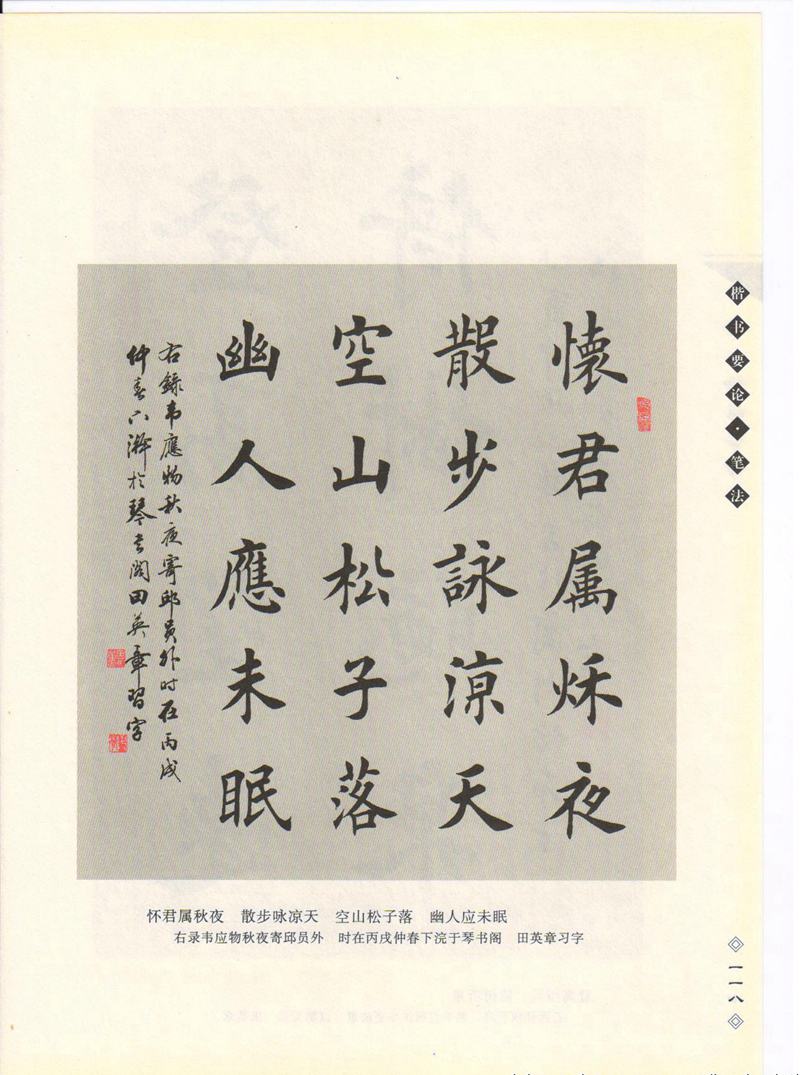 懷君属秌夜
散步詠涼天
空山松子落
幽人應未眠
右錄韦應物秋夜寄邱员外时在丙戌
仲春下澣於琴书阁田英章習字
怀君属秋夜　散步咏凉天　空山松子落　幽人应未眠
右录韦应物秋夜寄邱员外　时在丙戌仲春下浣于琴书阁　田英章习字
楷书要论·笔法
一一八